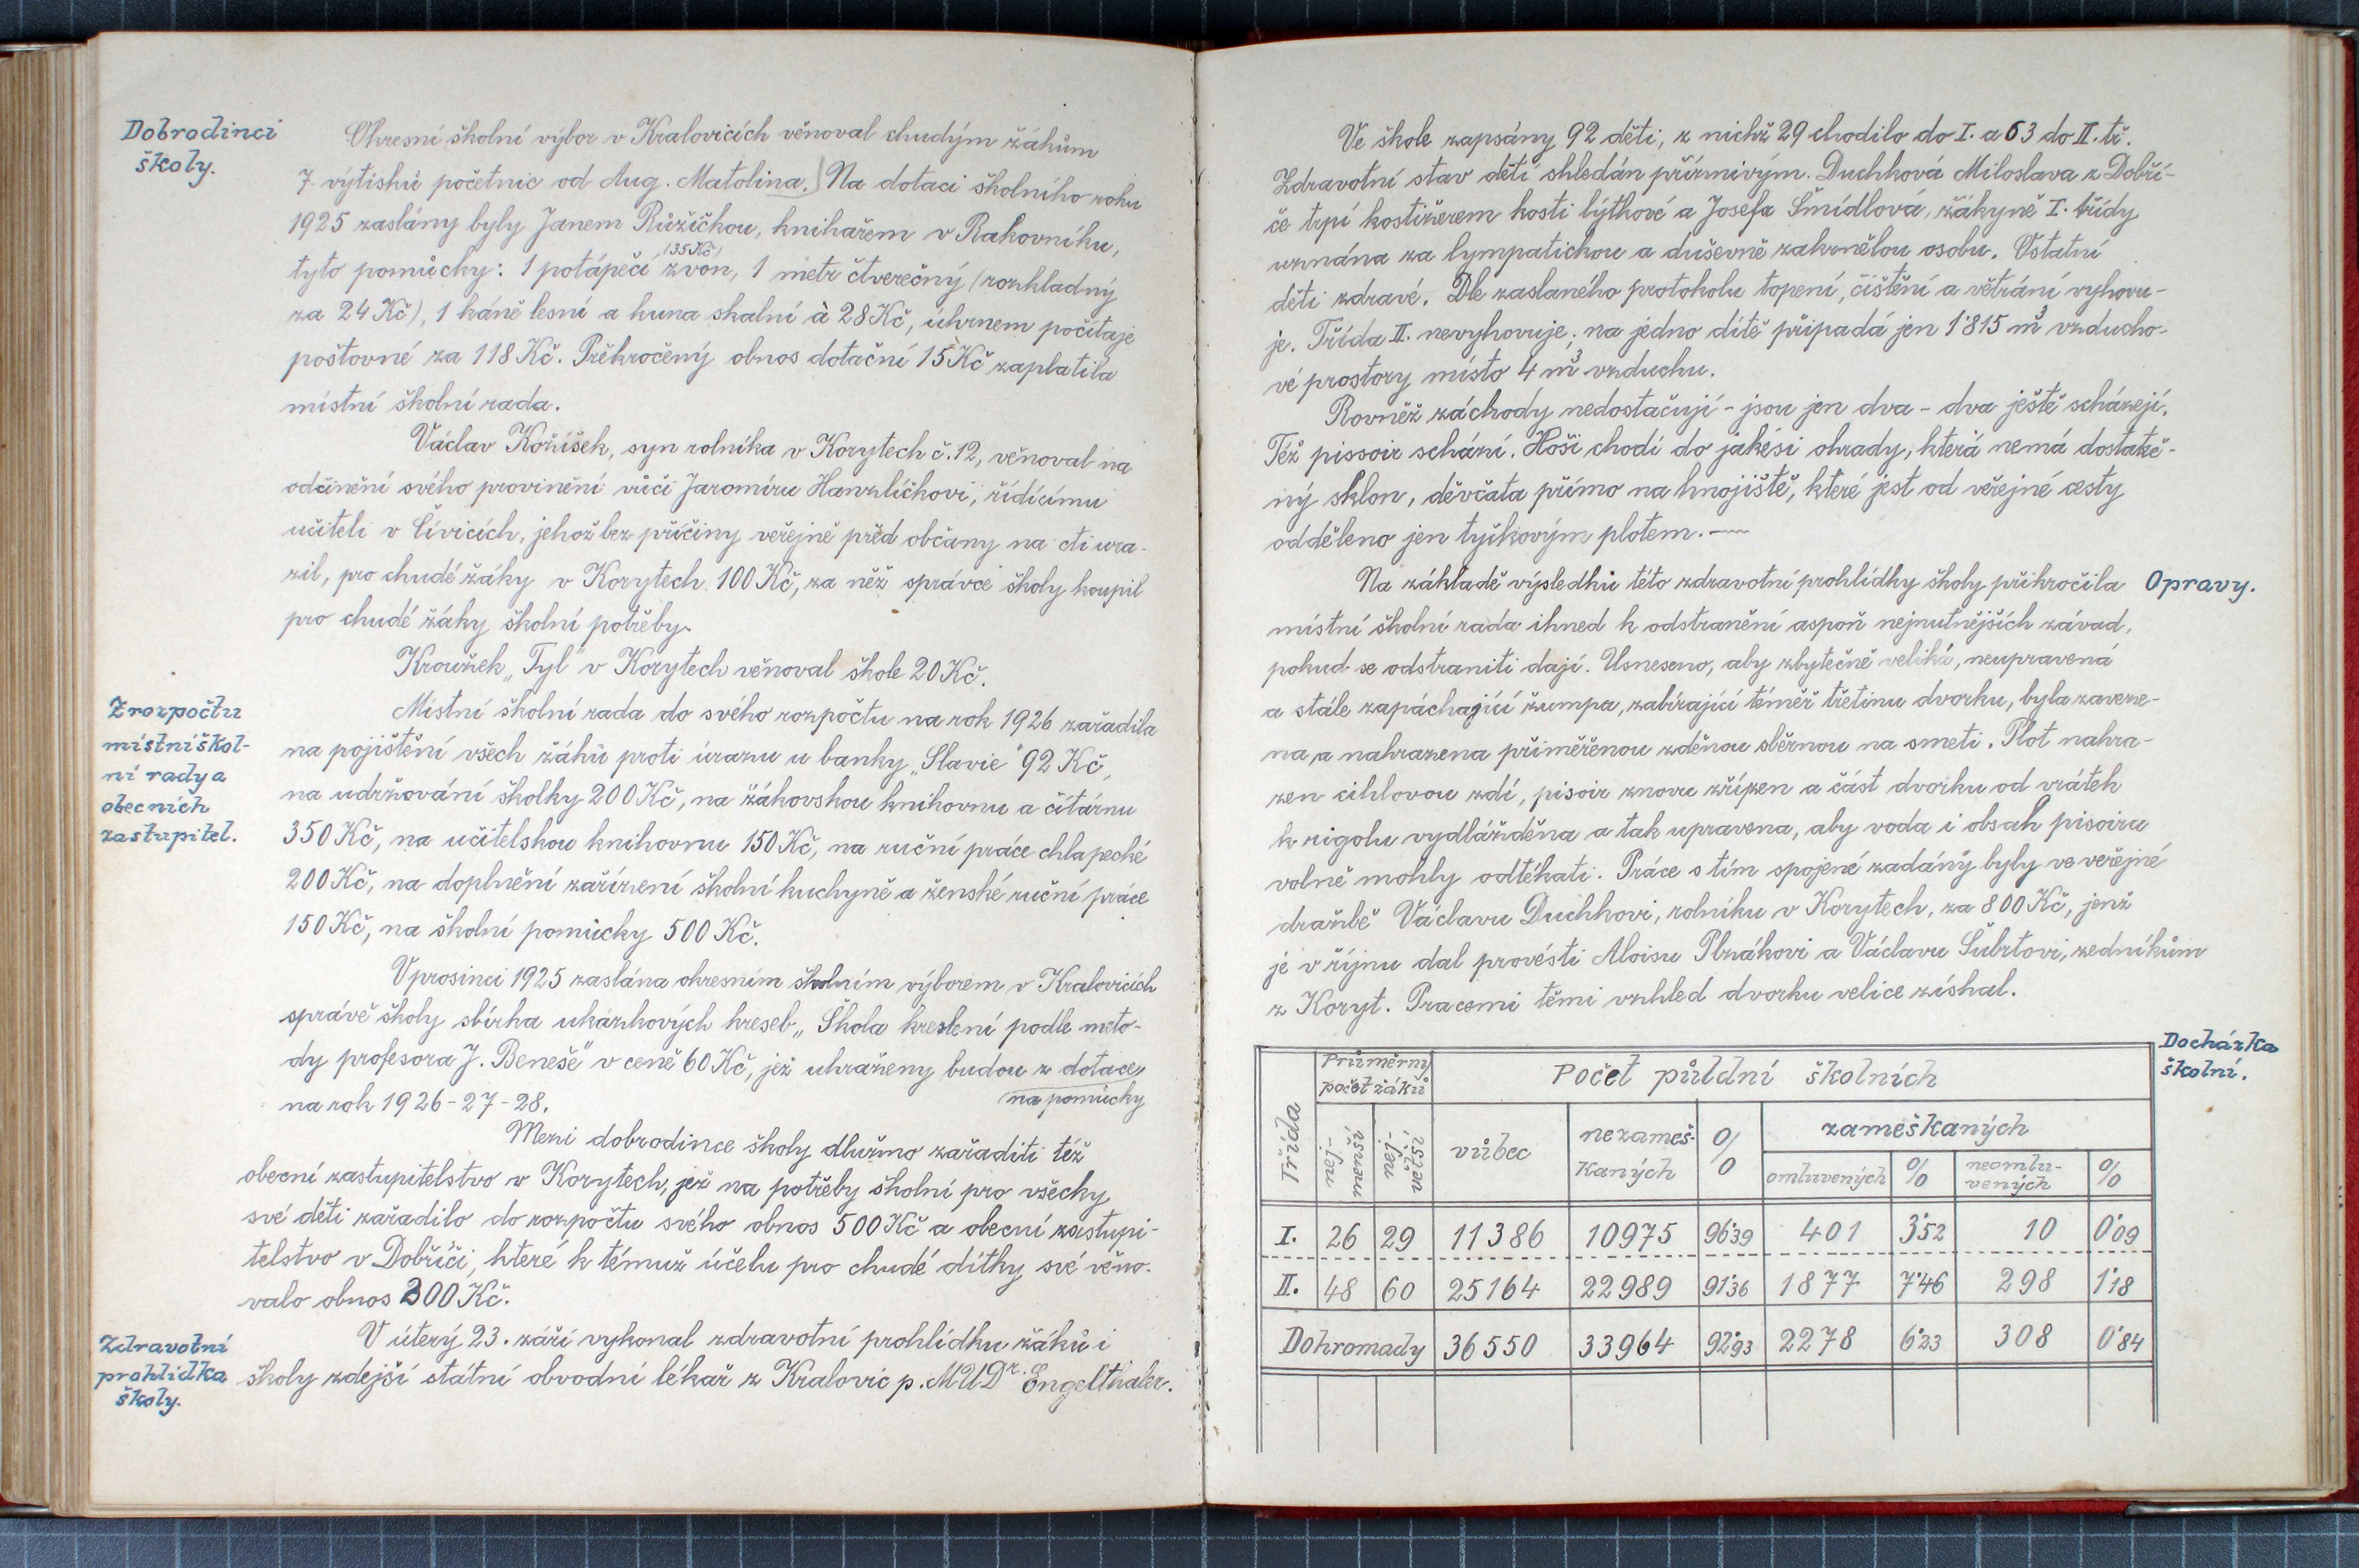 Dobrodinci
školy.
Okresní školní výbor v Kralovicích věnoval chudým žákům
7 výtisků početnic od Aug. Matolina. Na dotaci školního roku
1925 zaslány byly Janem Růžičkou, knihařem v Rakovníku,
(35 Kč)
tyto pomůcky: 1 potápěčí zvon, 1 metr čtverečný (rozkladný
za 24 Kč), 1 káně lesní a kuna skalní à 28 Kč, úhrnem počítaje
poštovné za 118 Kč. Překročený obnos dotační 15 Kč zaplatila
místní školní rada.
Václav Kožíšek, syn rolníka v Korytech č. 12, věnoval na
odčinění svého provinění vůči Jaromíru Hanzlíčkovi, řídícímu
učiteli v Čivicích, jehož bez příčiny veřejně před občany na cti ura-
zil, pro chudé žáky v Korytech 100 Kč, za něž správce školy koupil
pro chudé žáky školní potřeby.
Kroužek „Tyl" v Korytech věnoval škole 20 Kč.
Z rozpočtu
místní škol-
ní rady a
obecních
zastupitel.
Místní školní rada do svého rozpočtu na rok 1926 zařadila
na pojištění všech žáků proti úrazu u banky „Slavie" 92 Kč,
na udržování školky 200 Kč, na žákovskou knihovnu a čítárnu
350 Kč, na učitelskou knihovnu 150 Kč, na ruční práce chlapecké
200 Kč, na doplnění zařízení školní kuchyně a ženské ruční práce
150 Kč, na školní pomůcky 500 Kč.
V prosinci 1925 zaslána okresním školním výborem v Kralovicích
správě školy sbírka ukázkových kreseb „Škola kreslení podle meto-
dy profesora J. Beneše" v ceně 60 Kč, jež uhraženy budou z dotace
na pomůcky
na rok 1926-27-28.
Mezi dobrodince školy dlužno zařaditi též
obecní zastupitelstvo v Korytech, jež na potřeby školní pro všecky
své děti zařadilo do rozpočtu svého obnos 500 Kč a obecní zastupi-
telstvo v Dobříči, které k témuž účelu pro chudé dítky své věno-
valo obnos 300 Kč.
Zdravotní
prohlídka
školy.
V úterý 23. září vykonal zdravotní prohlídku žáků i
školy zdejší státní obvodní lékař z Kralovic p. MUDr. Engelthaler.
Ve škole zapsány 92 děti, z nichž 29 chodilo do I. a 63 do II. tř.
Zdravotní stav dětí shledán příznivým. Duchková Miloslava z Dobří-
če trpí kostižerem kosti lýtkové a Josefa Šmídlová, žákyně I. třídy
uznána za lympatickou a duševně zakrnělou osobu. Ostatní
děti zdravé. Dle zaslaného protokolu topení, čištění a větrání vyhovu-
je. Třída II. nevyhovuje; na jedno dítě připadá jen 1·815 m³ vzducho-
vé prostory místo 4 m³ vzduchu.
Rovněž záchody nedostačují - jsou jen dva - dva ještě scházejí.
Též pissoir schází. Hoši chodí do jakési ohrady, která nemá dostateč-
ný sklon, děvčata přímo na hnojiště, které jest od veřejné cesty
odděleno jen tyčkovým plotem. —
Opravy.
Na základě výsledků této zdravotní prohlídky školy přikročila
místní školní rada ihned k odstranění aspoň nejnutnějších závad,
pokud se odstraniti dají. Usneseno, aby zbytečně veliká, neupravená
a stále zapáchající žumpa, zabírající téměř třetinu dvorku, byla zaveze-
na a nahrazena přiměřenou zděnou sběrnou na smetí. Plot nahra-
zen cihlovou zdí, pisoir znovu zřízen a část dvorku od vrátek
k rigolu vydlážděna a tak upravena, aby voda i obsah pisoiru
volně mohly odtékati. Práce s tím spojené zadány byly ve veřejné
dražbě Václavu Duchkovi, rolníku v Korytech, za 800 Kč, jenž
je v říjnu dal provésti Aloisu Plzákovi a Václavu Šubrtovi, zedníkům
z Koryt. Pracemi těmi vzhled dvorku velice získal.
Docházka
školní.
Třída Průměrný počet žáků Počet půldní školních
nej-menší nej-větší vůbec nezameš-kaných % zameškaných
omluvených % neomlu-vených %
I. 26 29 11386 10975 96·39 401 3·52 10 0·09
II. 48 60 25164 22989 91·36 1877 7·46 298 1·18
Dohromady 36550 33964 92·93 2278 6·23 308 0·84